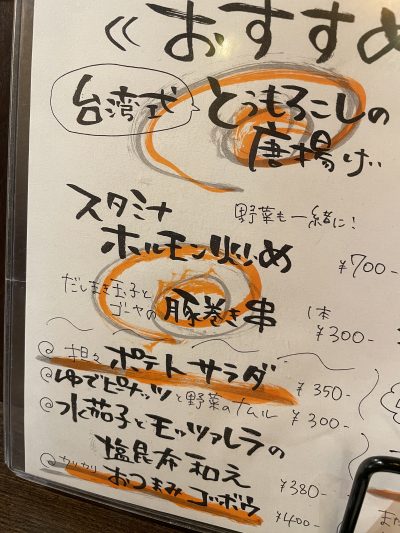 ≪おすすめ
台湾式 とうもろこしの
唐揚げ
スタミナ 野菜も一緒に!
ホルモン炒め ¥700-
だしまき玉子と
ゴーヤの豚巻き串 1本
¥300-
@坦々ポテトサラダ ¥350-
@ゆでピーナッツと野菜のナムル ¥300-
@水茄子とモッツァレラの
塩昆布和え ¥380-
@カリカリおつまみゴボウ ¥400-